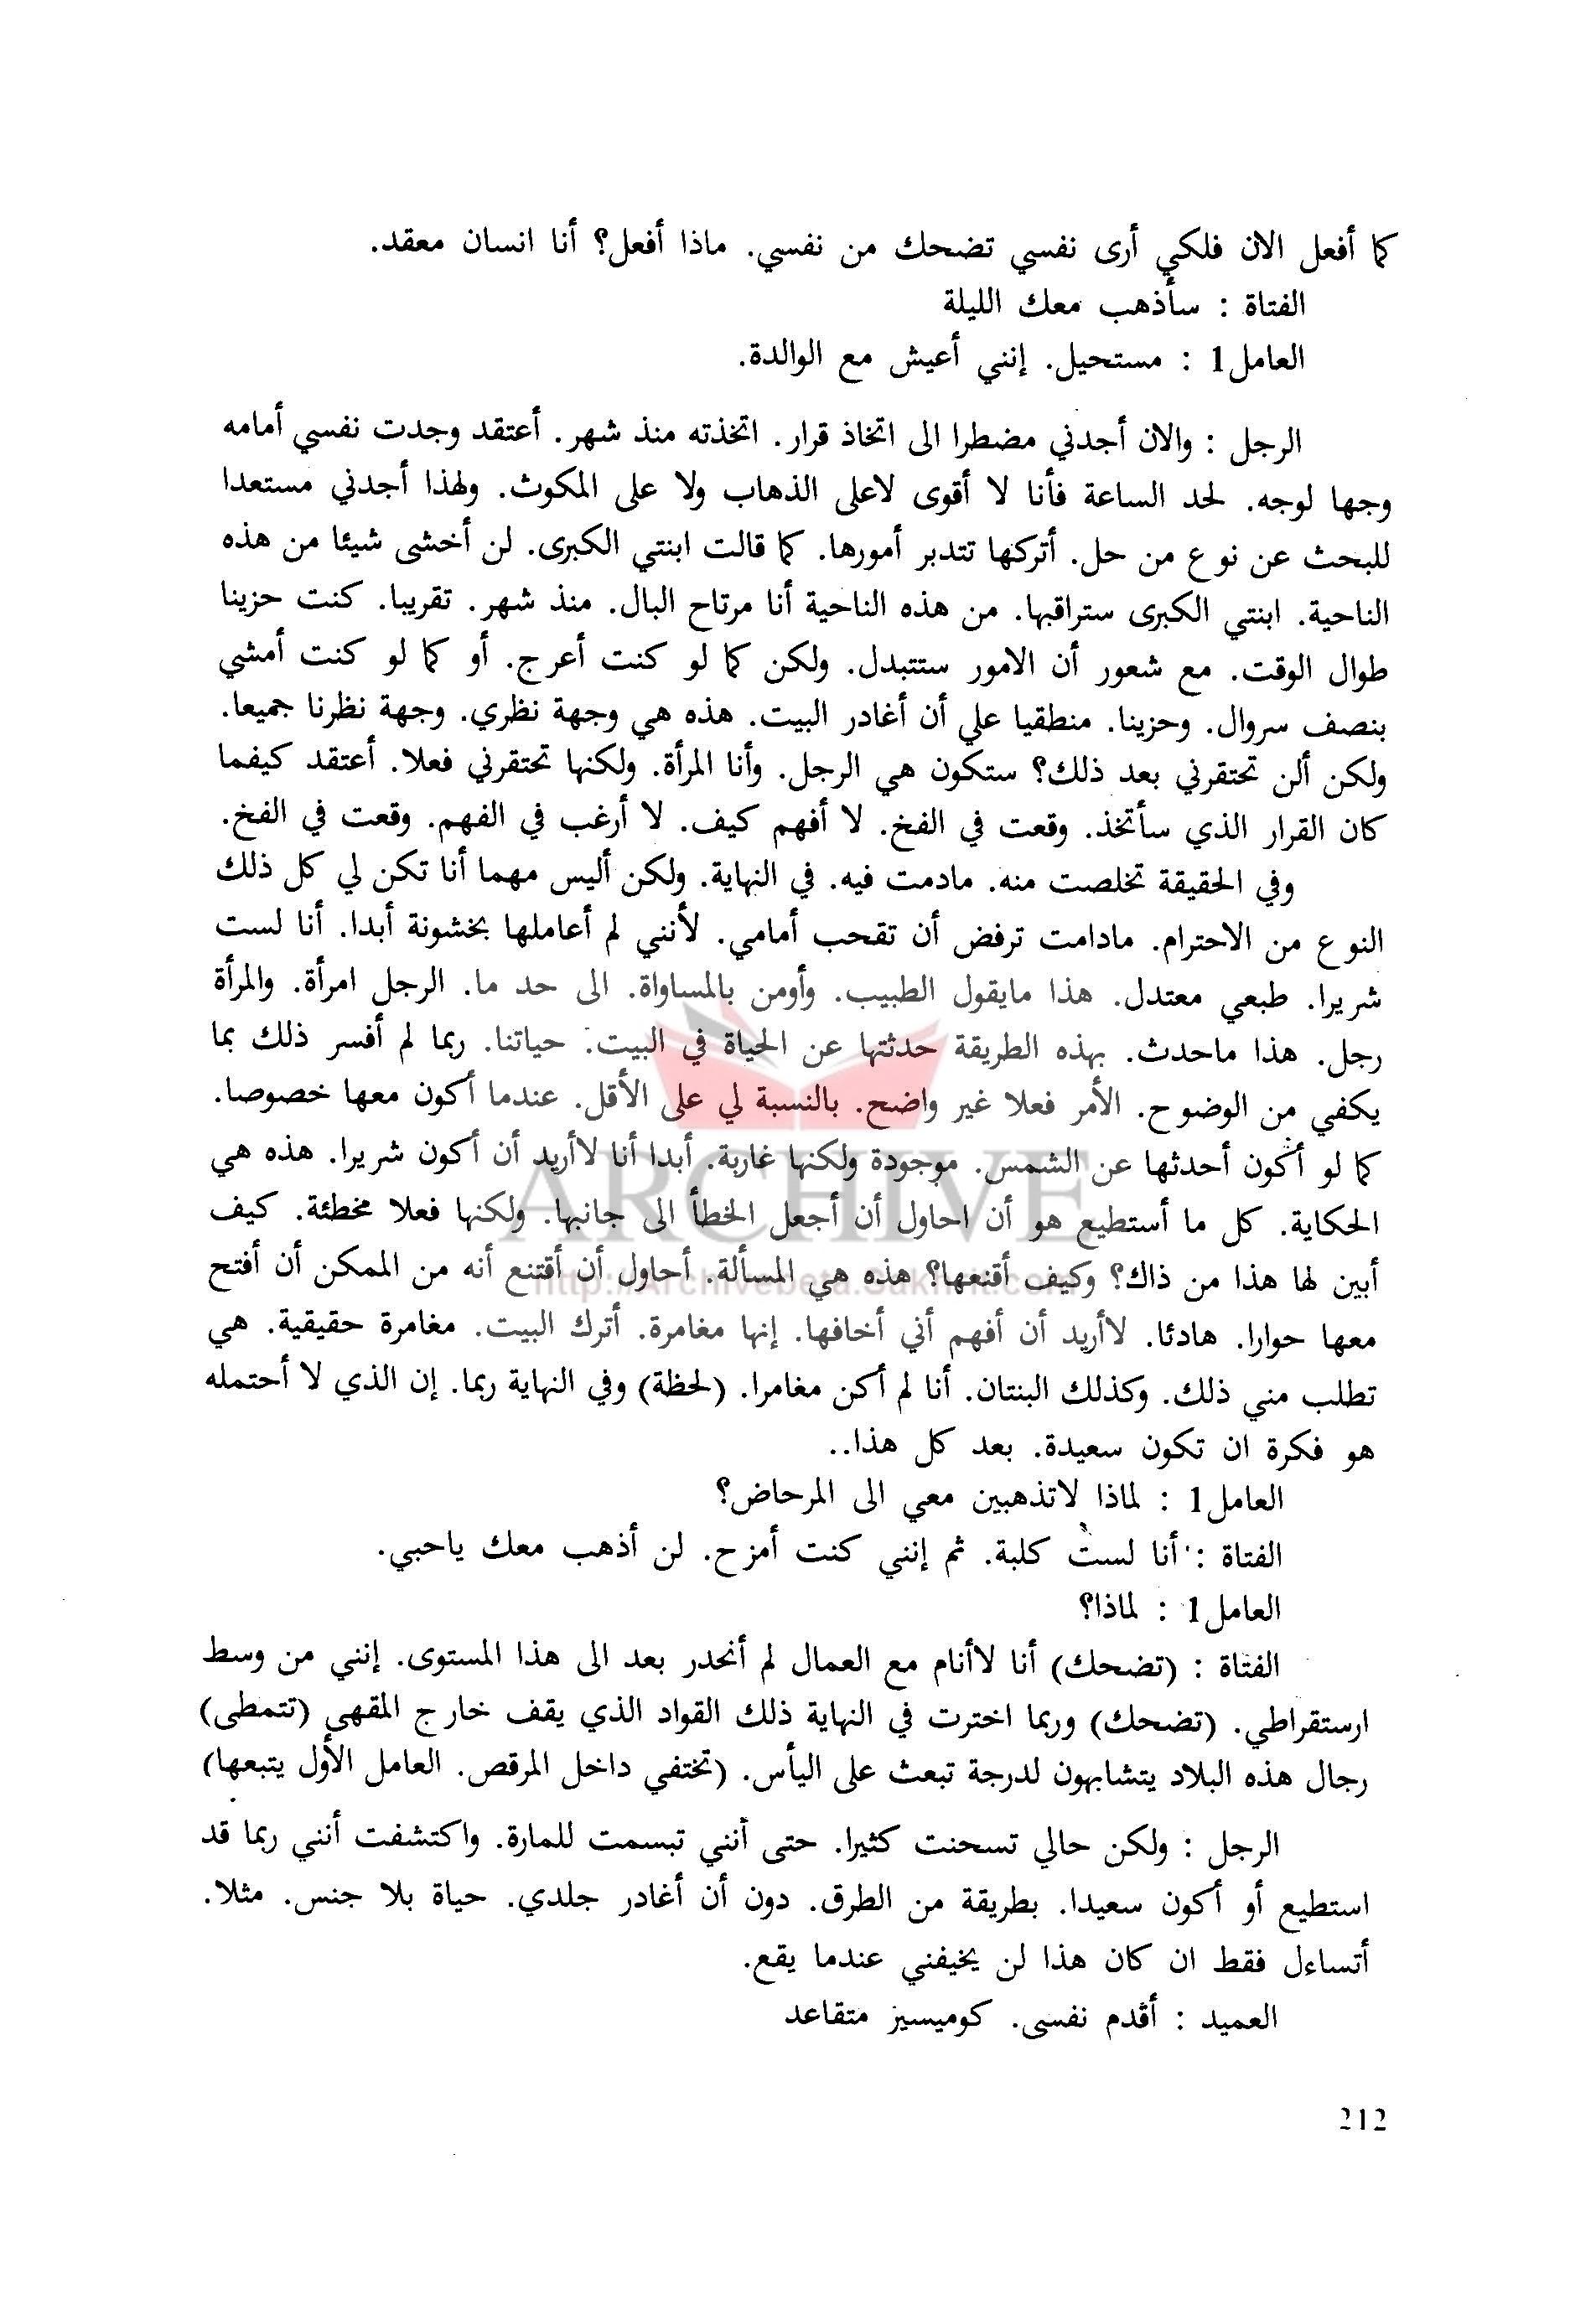 كما أفعل الان فلكي أرى نفسي تضحك من نفسي. ماذا أفعل؟ أنا انسان معقد.
الفتاة : سأذهب معك الليلة
العامل1 : مستحيل. إنني أعيش مع الوالدة.
الرجل : والان أجدني مضطرا الى اتخاذ قرار. اتخذته منذ شهر. أعتقد وجدت نفسي أمامه
وجها لوجه. لحد الساعة فأنا لا أقوى لاعلى الذهاب ولا على المكوث. ولهذا أجدني مستعدا
للبحث عن نوع من حل. أتركها تتدبر أمورها. كما قالت ابنتي الكبرى. لن أخشى شيئا من هذه
الناحية. ابنتي الكبرى ستراقبها. من هذه الناحية أنا مرتاح البال. منذ شهر. تقريبا. كنت حزينا
طوال الوقت. مع شعور أن الامور ستتبدل. ولكن كما لو كنت أعرج. أو كما لو كنت أمشي
بنصف سروال. وحزينا. منطقيا علي أن أغادر البيت. هذه هي وجهة نظري. وجهة نظرنا جميعا.
ولكن ألن تحتقرني بعد ذلك؟ ستكون هي الرجل. وأنا المرأة. ولكنها تحتقرني فعلا. أعتقد كيفما
كان القرار الذي سأتخذ. وقعت في الفخ. لا أفهم كيف. لا أرغب في الفهم. وقعت في الفخ.
وفي الحقيقة تخلصت منه. مادمت فيه. في النهاية. ولكن أليس مهما أنا تكن لي كل ذلك
النوع من الاحترام. مادامت ترفض أن تقحب أمامي. لأنني لم أعاملها بخشونة أبدا. أنا لست
شريرا. طبعي معتدل. هذا مايقول الطبيب. وأومن بالمساواة. الى حد ما. الرجل امرأة. والمرأة
رجل. هذا ماحدث. بهذه الطريقة حدثتها عن الحياة في البيت. حياتنا. ربما لم أفسر ذلك بما
يكفي من الوضوح. الأمر فعلا غير واضح. بالنسبة لي على الأقل. عندما أكون معها خصوصا.
كما لو أكون أحدثها عن الشمس. موجودة ولكنها غاربة. أبدا أنا لاأريد أن أكون شريرا. هذه هي
ARCHIVE
الحكاية. كل ما أستطيع هو أن احاول أن أجعل الخطأ الى جانبها. ولكنها فعلا مخطئة. كيف
أبين لها هذا من ذاك؟ وكيف أقنعها؟ هذه هي المسألة. أحاول أن أقتنع أنه من الممكن أن أفتح
http://Archivebeta.Sakhrit.com
معها حوارا. هادئا. لاأريد أن أفهم أني أخافها. إنها مغامرة. أترك البيت. مغامرة حقيقية. هي
تطلب مني ذلك. وكذلك البنتان. أنا لم أكن مغامرا. (لحظة) وفي النهاية ربما. إن الذي لا أحتمله
هو فكرة ان تكون سعيدة. بعد كل هذا..
العامل1 : لماذا لاتذهبين معي الى المرحاض؟
الفتاة : أنا لست كلبة. ثم إنني كنت أمزح. لن أذهب معك ياحبي.
العامل1 : لماذا؟
الفتاة : (تضحك) أنا لاأنام مع العمال لم أنحدر بعد الى هذا المستوى. إنني من وسط
ارستقراطي. (تضحك) وربما اخترت في النهاية ذلك القواد الذي يقف خارج المقهى (تتمطى)
رجال هذه البلاد يتشابهون لدرجة تبعث على اليأس. (تختفي داخل المرقص. العامل الأول يتبعها)
الرجل : ولكن حالي تسحنت كثيرا. حتى أنني تبسمت للمارة. واكتشفت أنني ربما قد
استطيع أو أكون سعيدا. بطريقة من الطرق. دون أن أغادر جلدي. حياة بلا جنس. مثلا.
أتساءل فقط ان كان هذا لن يخيفني عندما يقع.
العميد : أقدم نفسى. كوميسيز متقاعد
212